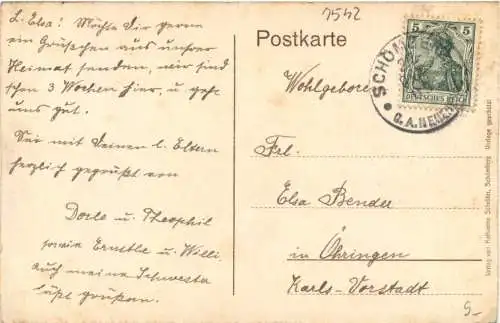 L. Elsa! Möchte Dir gerne
ein Grüßchen aus unsrer
Heimat senden, wir sind
schon 3 Wochen hier, u. geht
uns gut.
Sei mit Deinen l. Eltern
herzlich gegrüßt von
Dorle u. Theophil
sowie Ernstle u. Willi,
Auch meine Schwester
läßt grüßen.
7542
Postkarte
5 5
DEUTSCHES REICH
SCHÖM
O. A. NEUEN
Wohlgeboren
Frl.
Elsa Bender
in Öhringen
Karls-Vorstadt
5-
Verlag von Katharine Schäfer, Schömberg. Vorlage geschützt